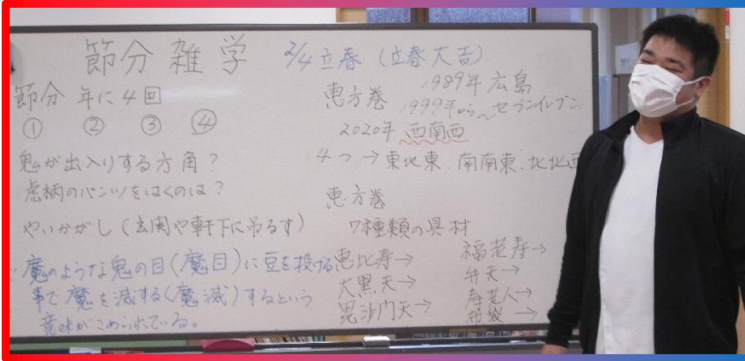 節分 雑学
2/4 立春 (立春大吉)
節分 年に4回
① ② ③ ④
鬼が出入りする方角?
虎柄のパンツをはくのは?
やいかがし(玄関や軒下に吊るす)
魔のような鬼の目(魔目)に豆を投げる
事で魔を滅する(魔滅)するという
意味がこめられている。
恵方巻 1989年広島
1999年から セブンイレブン
2020年 西南西
4つ→東北東、南南東、北北西
恵方巻
7種類の具材
恵比寿→
大黒天→
毘沙門天→
福老寿→
弁天→
寿老人→
布袋→